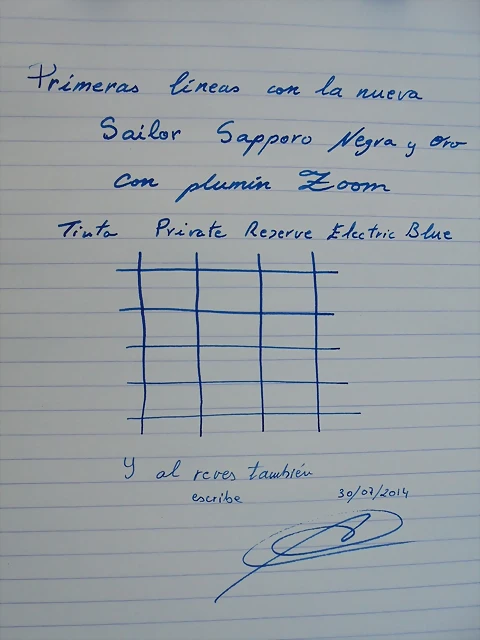 Primeras líneas con la nueva
Sailor Sapporo Negra y oro
con plumín Zoom
Tinta Private Reserve Electric Blue
Y al reves también
escribe
30/07/2014